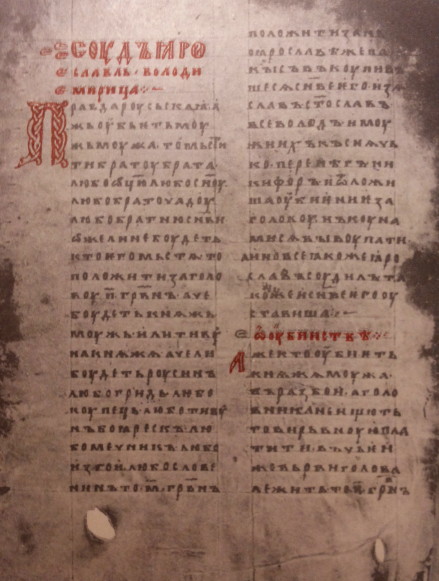 СОУДЪ ꙖРО
СЛАВЛЬ · ВОЛОДИ
МИРИЦА
Правда роусьскаꙗ · а
жь оубьѥть моу
жь моужа · то мьсти
ти братоу брата
любо ѡцю · любо сноу
любо братоу чадоу
ѡже ли не боудеть
кто ѥго мьстѧ то
положити за голо
боудеть кнѧжь
моужь · или тивоу
на кнѧжѧ · аче ли
боудеть роусинъ
любо гридь · любо
коупець · любо тивоу
нъ боꙗрескъ · лю
бо мечникъ · любо
изгои · любо слове
нинъ · то · м҃ · грвнъ
положити за нь
по ꙗрославѣ же па
кы съвъкоупивъ
шесѧ снве ѥго · изѧ
славъ · стославъ
всеволодъ · и моу
жи ихъ · къснѧчь
ко · перенѣгъ · ни
кифоръ · и ѿложи
ша оубиениѥ за
головоу · нъ коуна
ми сѧ выкоупати
а ино всѧ ꙗкоже ꙗро
славъ соудилъ та
коже и снве ѥго оу
ставиша
ѡ оубииствѣ
Аже кто оубиѥть
кнѧжа моужа
въ разбои · а голо
вника не ищють
то вирьвноую пла
тити · въ чьѥи
же вьрви голова
лежить то п҃ грвнъ